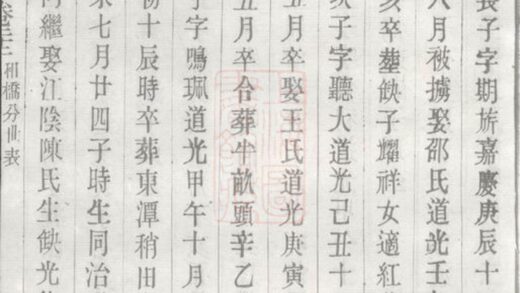 長子字期旂嘉慶庚辰十
八月被擄娶邵氏道光壬
亥卒塟缺子耀祥女適紅
次子字聽大道光己丑十
五月卒娶王氏道光庚寅
五月卒合葬牛畝頭辛乙
子字鳴珮道光甲午十月
初十辰時卒葬東潭稍田
未七月廿四子時生同治
繼娶江陰陳氏生缺光
和橋分世表